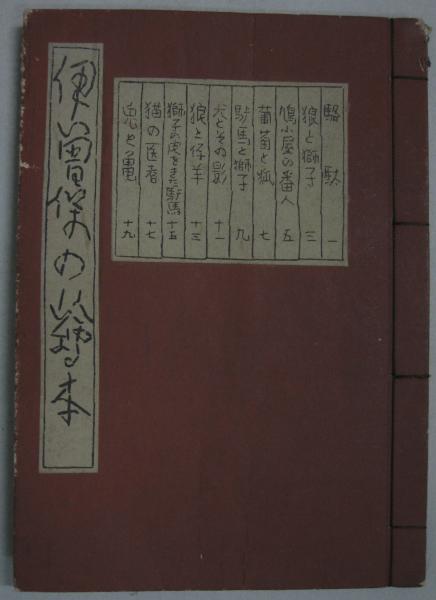 伊曽保の絵本
駱駄 一
狼と獅子 三
鳩小屋の番人 五
葡萄と狐 七
馿馬と獅子 九
犬とその影 十一
狼と仔羊 十三
獅子の皮をきた馿馬 十五
猫の医者 十七
兎と亀 十九